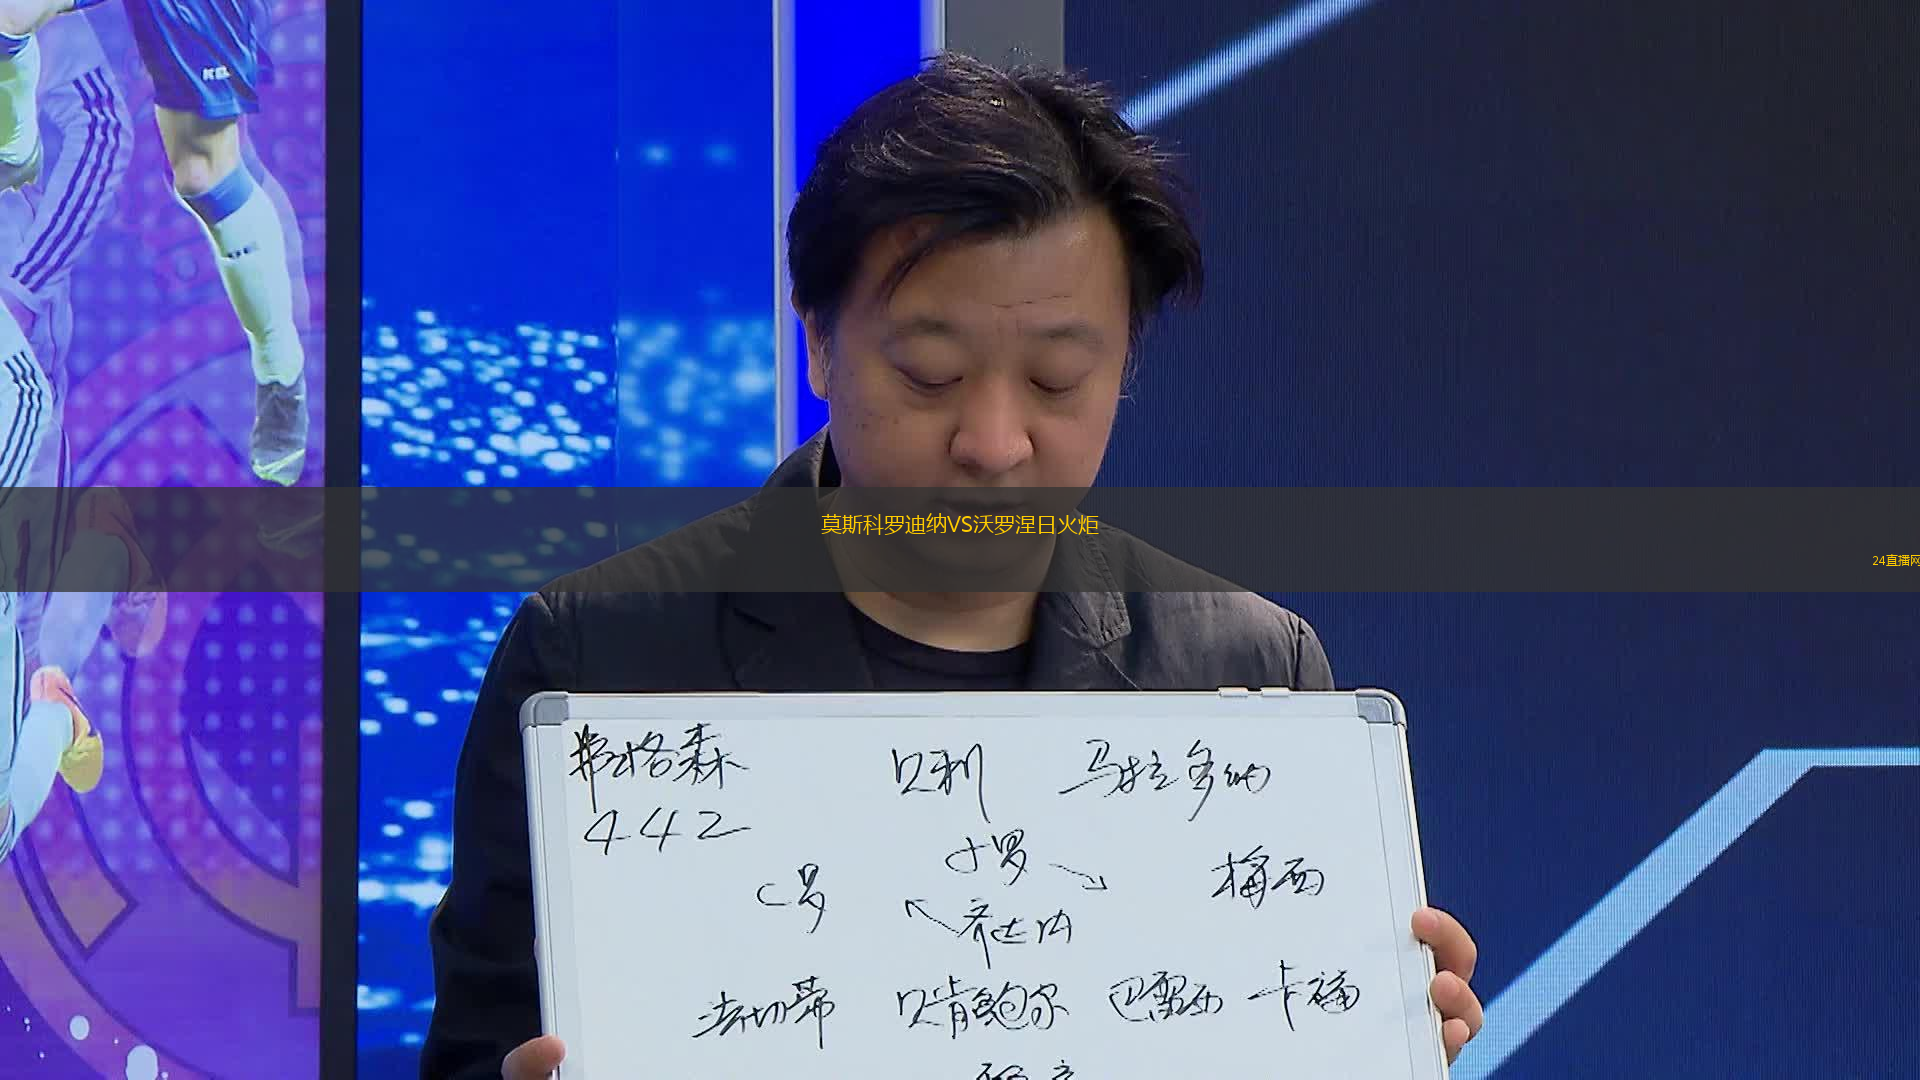 莫斯科罗迪纳VS沃罗涅日火炬
24直播网
弗格森 贝利 马拉多纳
442
小罗
C罗 梅西
齐达内
法切蒂 贝肯鲍尔 巴雷西 卡福